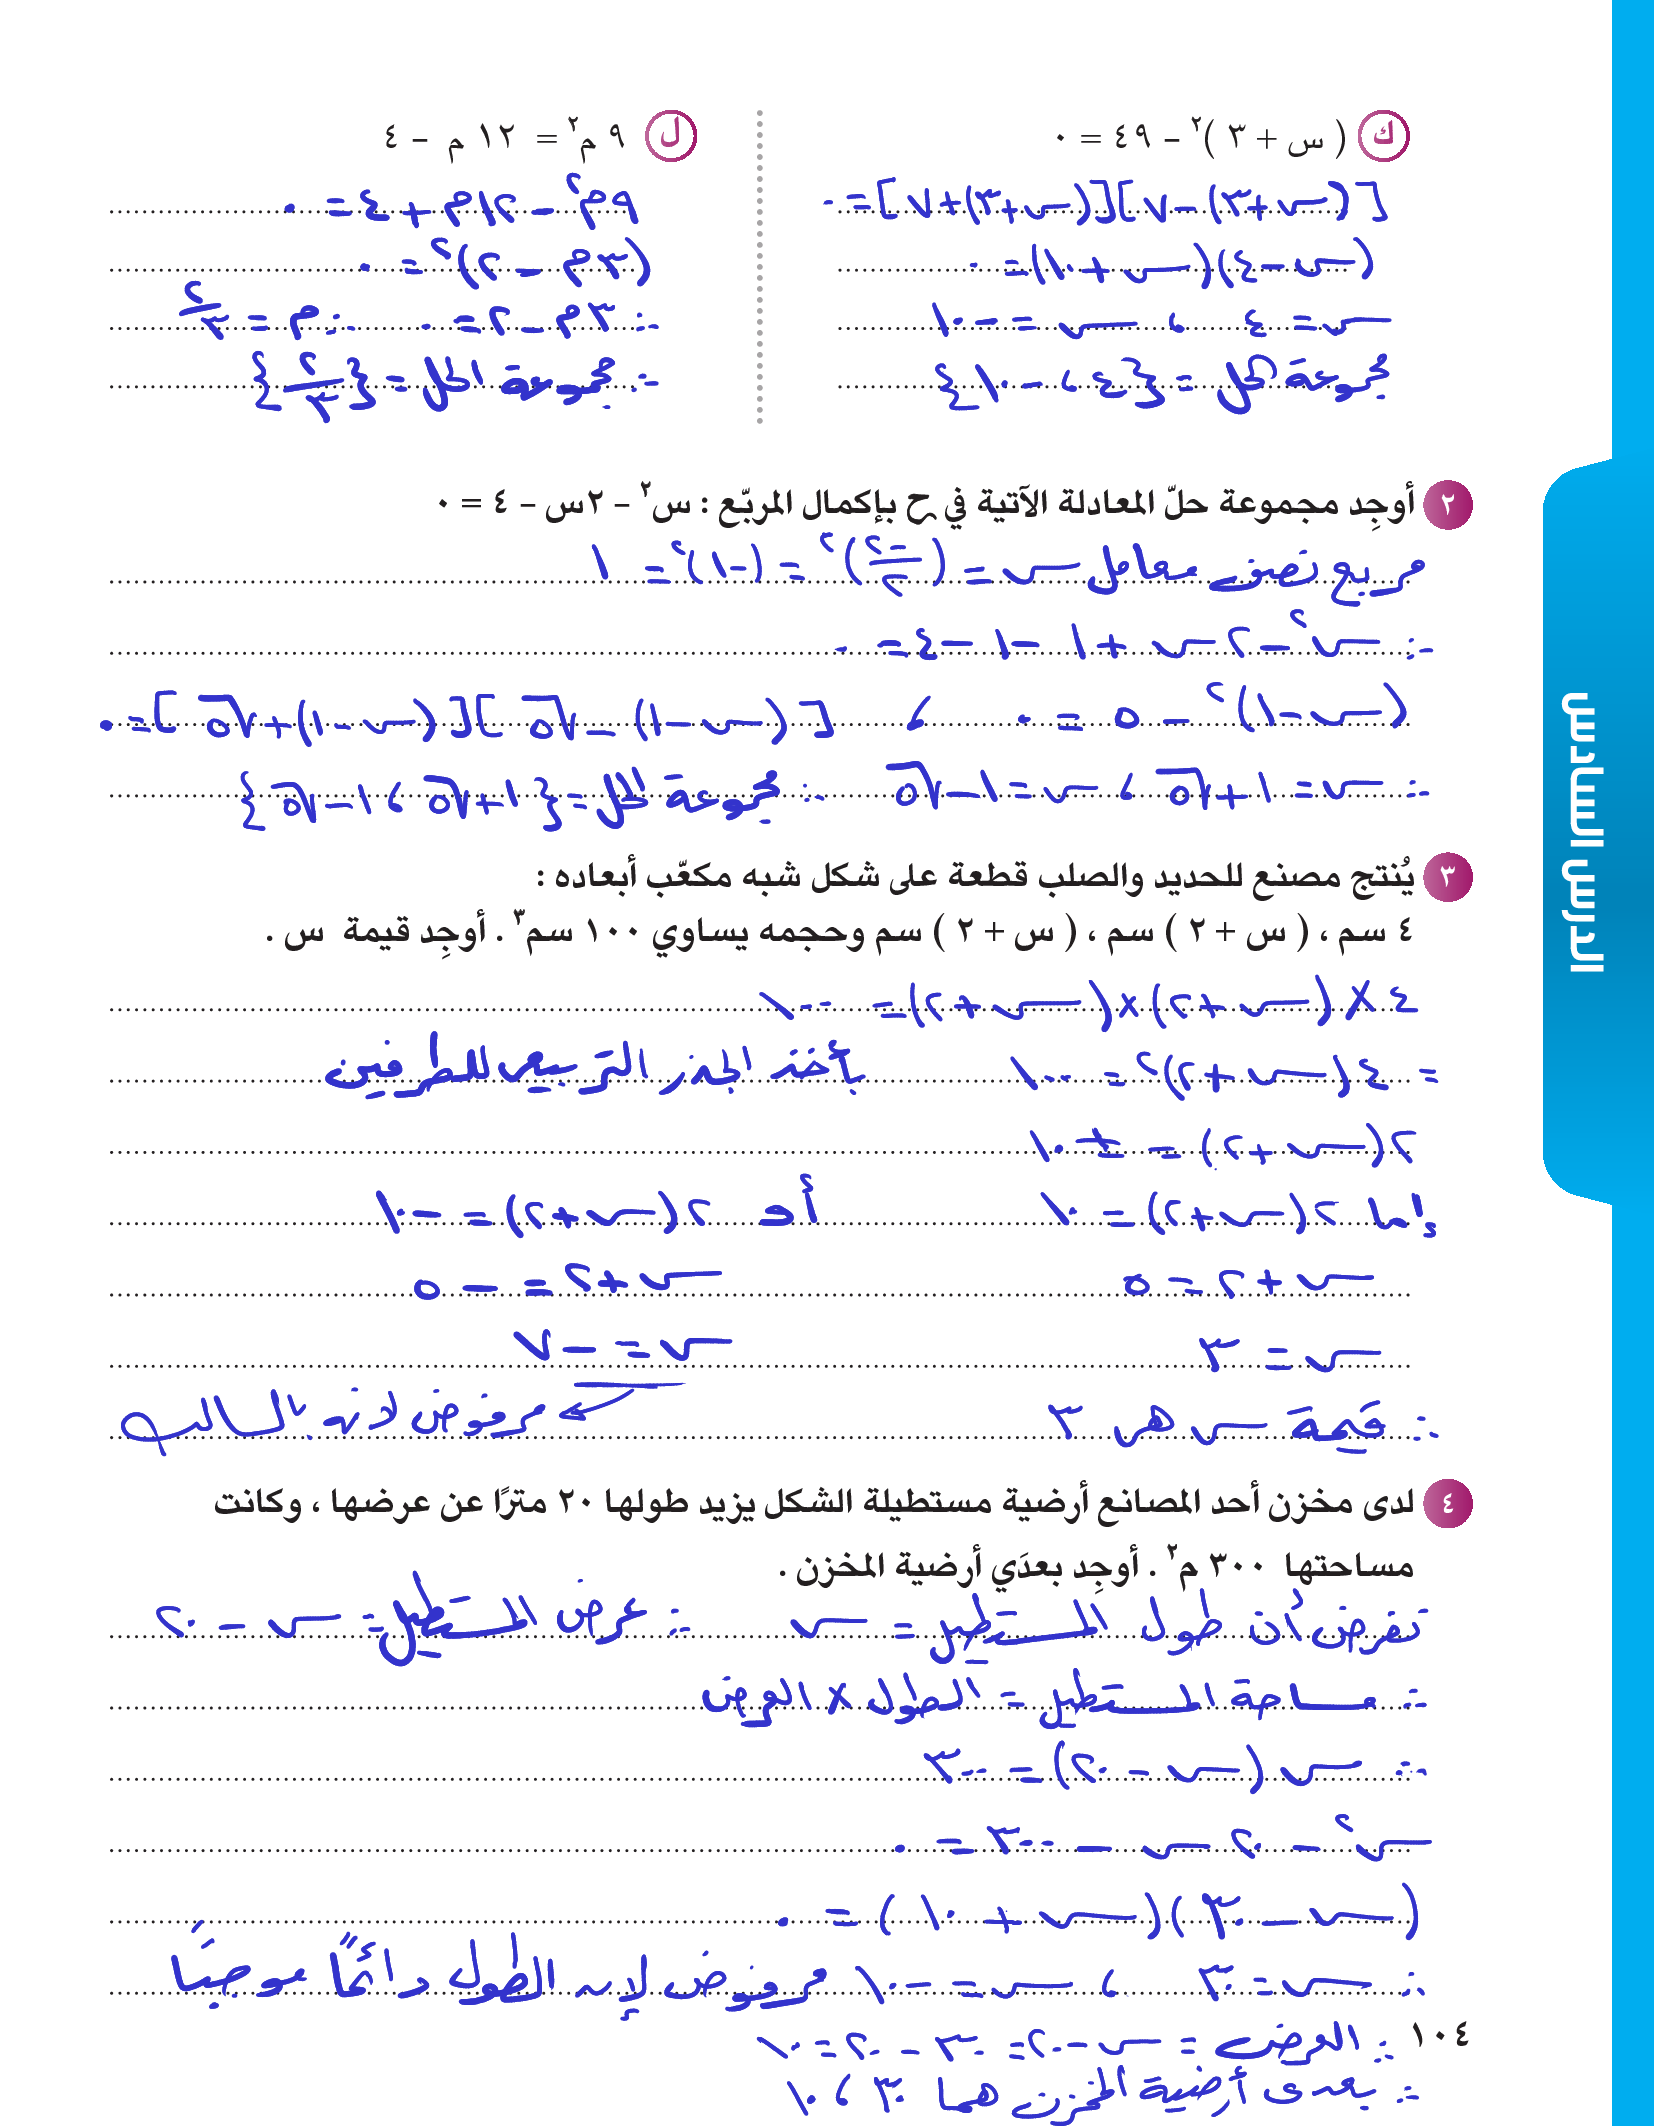 ك ( س + ٣ )٢ – ٤٩ = ٠
[(س+٣)−٧][(س+٣)+٧] = ٠
(س−٤)(س+١٠) = ٠
س = ٤ ، س = −١٠
مجموعة الحل = {٤ ، −١٠}
ل ٩ م٢ = ١٢ م – ٤
٩م٢ − ١٢م + ٤ = ٠
(٣م − ٢)٢ = ٠
∴ ٣م − ٢ = ٠ ∴ م = ٢/٣
∴ مجموعة الحل = {٢/٣}
٢ أوجِد مجموعة حلّ المعادلة الآتية في ح بإكمال المربّع : س٢ – ٢س – ٤ = ٠
مربع نصف معامل س = (−٢/٢)٢ = (−١)٢ = ١
∴ س٢ − ٢س + ١ − ١ − ٤ = ٠
(س−١)٢ − ٥ = ٠ ، [(س−١) − √٥][(س−١) + √٥] = ٠
∴ س = ١+√٥ ، س = ١−√٥ ∴ مجموعة الحل = {١+√٥ ، ١−√٥}
٣ يُنتج مصنع للحديد والصلب قطعة على شكل شبه مكعّب أبعاده :
٤ سم ، ( س + ٢ ) سم ، ( س + ٢ ) سم وحجمه يساوي ١٠٠ سم٣ . أوجِد قيمة س .
٤ × (س+٢) × (س+٢) = ١٠٠
= ٤(س+٢)٢ = ١٠٠ بأخذ الجذر التربيعي للطرفين
٢(س+٢) = ± ١٠
إما ٢(س+٢) = ١٠ أو ٢(س+٢) = −١٠
س+٢ = ٥ س+٢ = −٥
س = ٣ س = −٧
∴ قيمة س هي ٣ مرفوض لانه بالسالب
٤ لدى مخزن أحد المصانع أرضية مستطيلة الشكل يزيد طولها ٢٠ مترًا عن عرضها ، وكانت
مساحتها ٣٠٠ م٢ . أوجِد بعدَي أرضية المخزن .
نفرض أن طول المستطيل = س ∴ عرض المستطيل = س − ٢٠
∴ مساحة المستطيل = الطول × العرض
∴ س(س − ٢٠) = ٣٠٠
س٢ − ٢٠ س − ٣٠٠ = ٠
(س − ٣٠)(س + ١٠) = ٠
∴ س = ٣٠ ، س = −١٠ مرفوض لإن الطول دائمًا موجبًا
∴ العرض = س − ٢٠ = ٣٠ − ٢٠ = ١٠
∴ بعدى أرضية المخزن هما ٣٠ ، ١٠
١٠٤
الدرس السادس